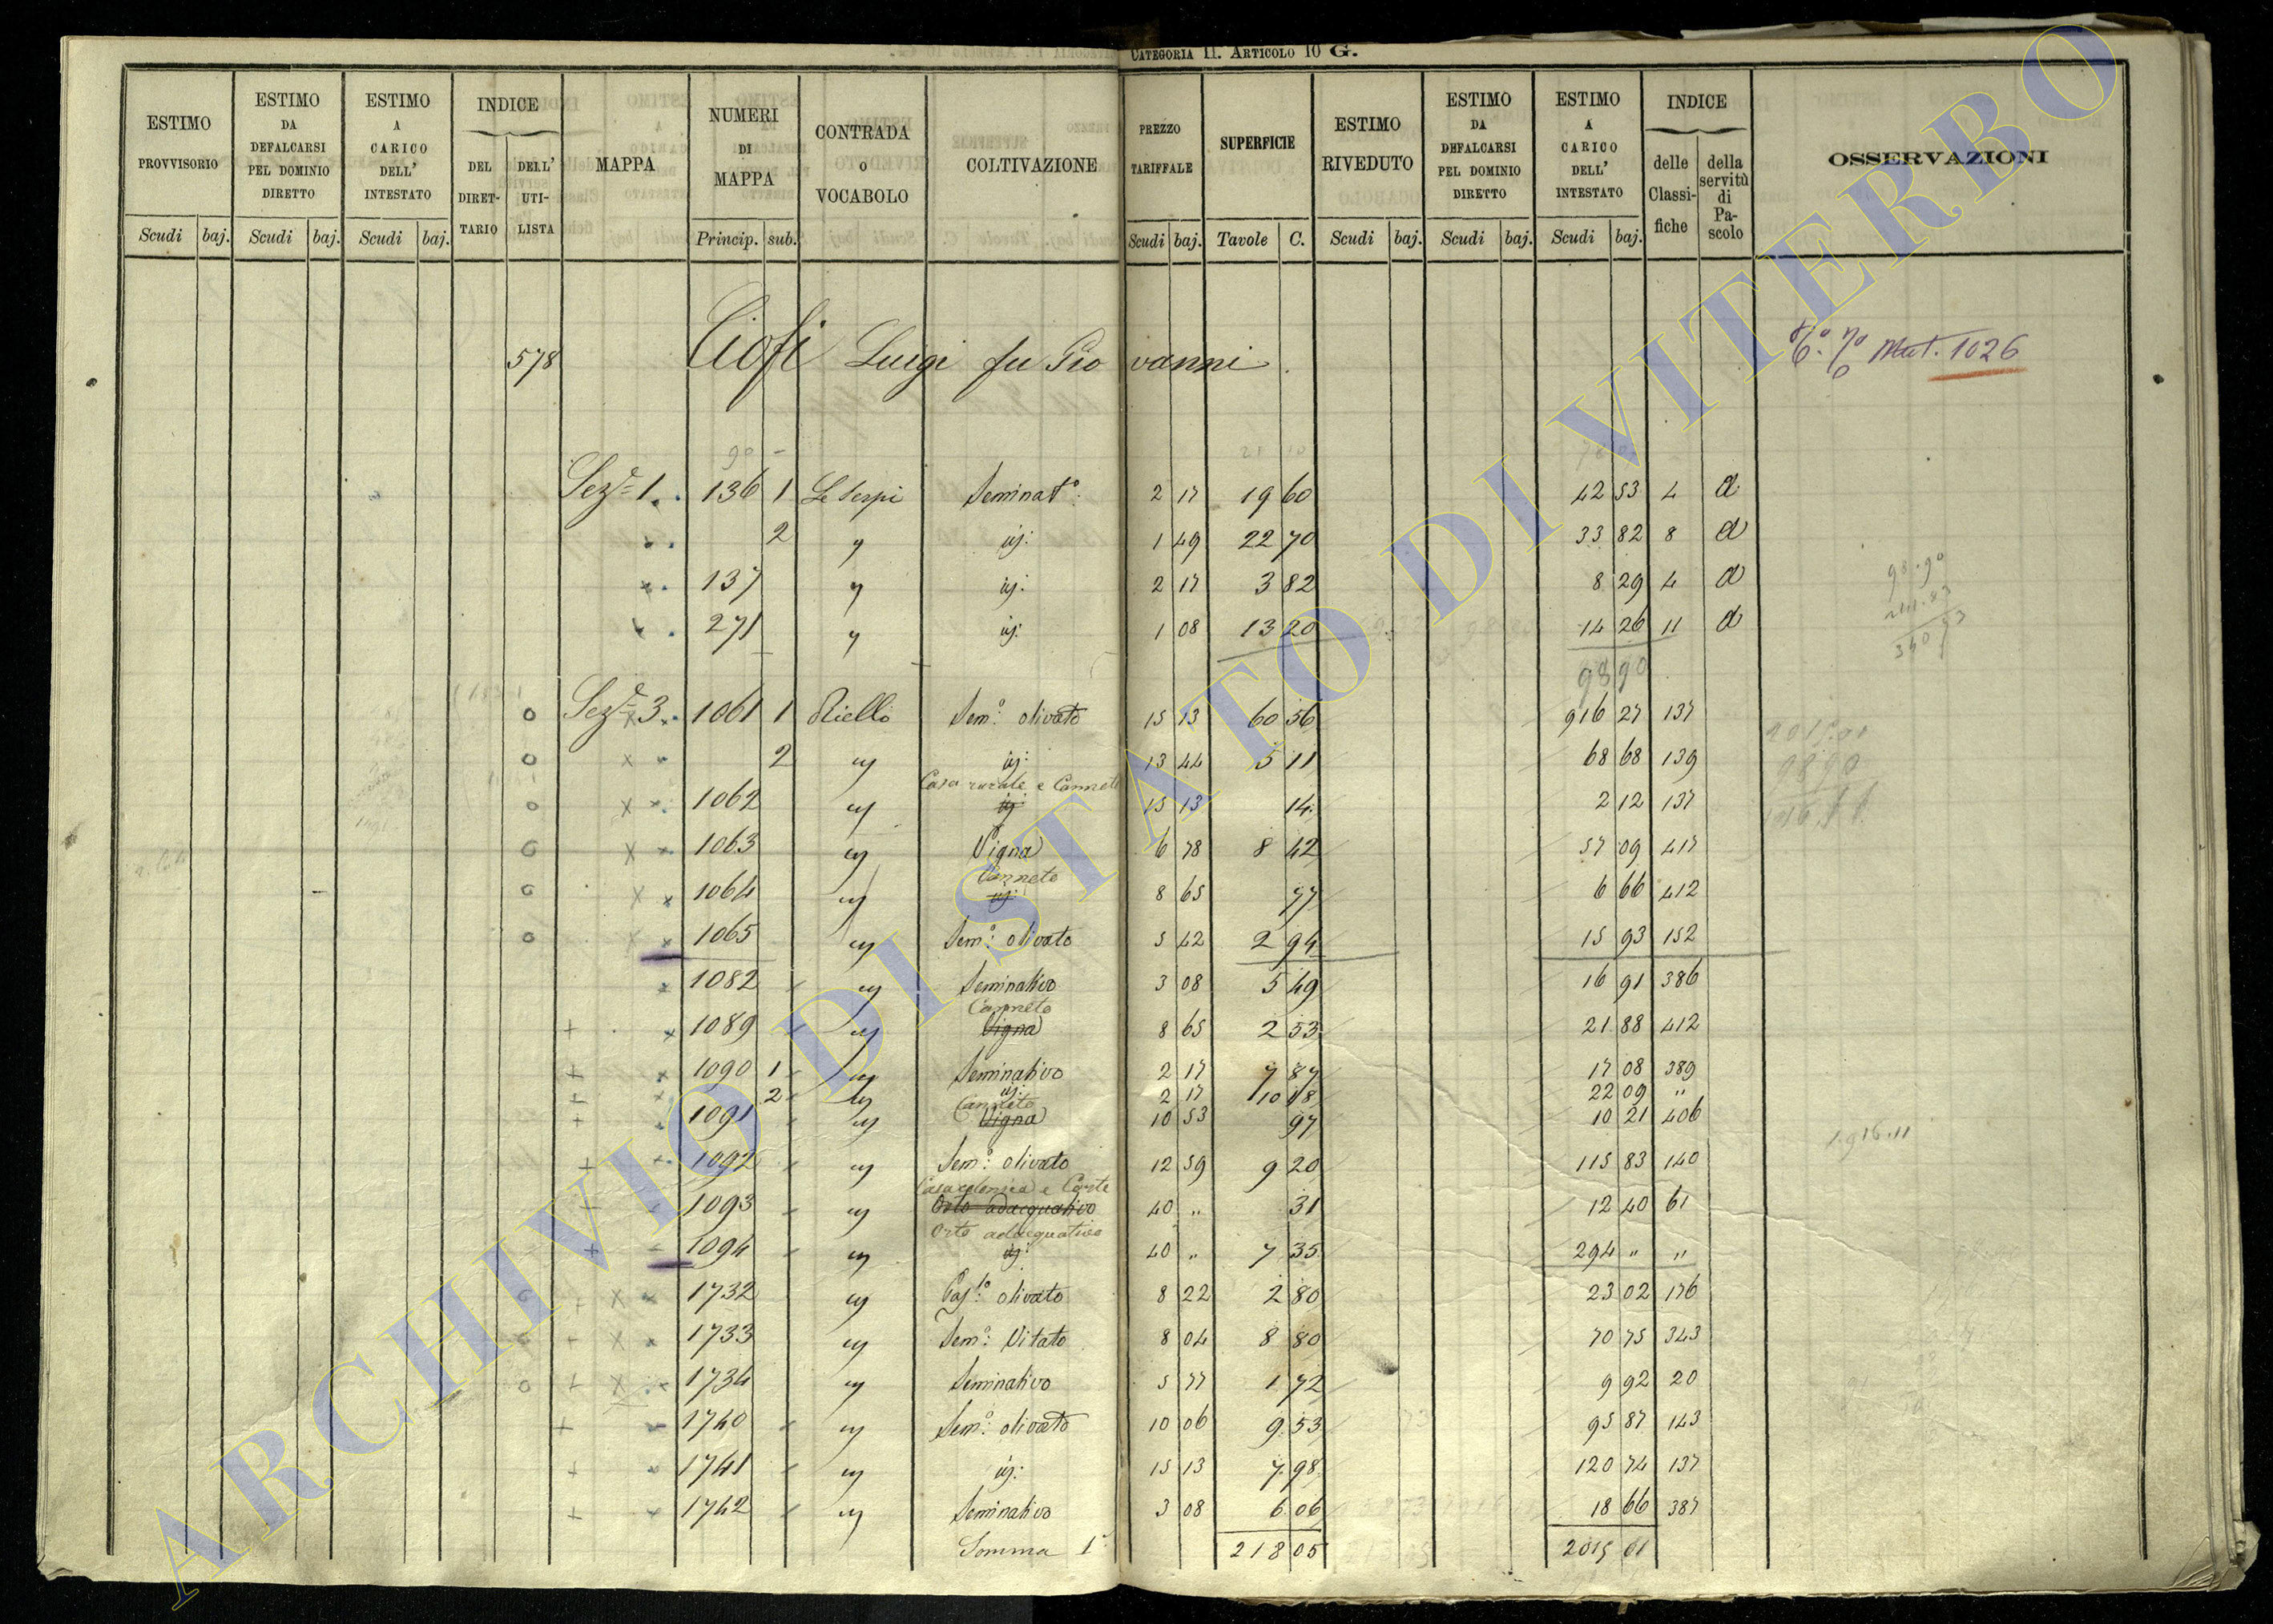 CATEGORIA II. ARTICOLO 10 G.
ESTIMO PROVVISORIO Scudi baj.
ESTIMO DA DEFALCARSI PEL DOMINIO DIRETTO Scudi baj.
ESTIMO A CARICO DELL' INTESTATO Scudi baj.
INDICE DEL DIRET- TARIO DELL' UTI- LISTA
MAPPA
NUMERI DI MAPPA Princip. sub.
CONTRADA o VOCABOLO
COLTIVAZIONE
PREZZO TARIFFALE Scudi baj.
SUPERFICIE Tavole C.
ESTIMO RIVEDUTO Scudi baj.
ESTIMO DA DEFALCARSI PEL DOMINIO DIRETTO Scudi baj.
ESTIMO A CARICO DELL' INTESTATO Scudi baj.
INDICE delle Classi- fiche della servitù di Pa- scolo
OSSERVAZIONI
578 Ciofi Luigi fu Giovanni.
Mut. 1026
90 -
Sez.e 1. 136 1 Le Serpi Seminat.o 2 17 19 60 42 53 4 a
2 " id: 1 49 22 70 33 82 8 a
137 " id: 2 17 3 82 8 29 4 a
271 " id: 1 08 13 20 14 26 11 a
98 90
98.90
241.83
340 73
Sez.e 3. 1061 1 Riello Sem.o olivato 15 13 60 56 916 27 137
2 " id: 13 44 5 11 68 68 139
Casa rurale e Canneto
1062 " id 15 13 14 2 12 137
1063 " Vigna 6 78 8 42 57 09 417
Canneto
1064 " id: 8 65 77 6 66 412
1065 " Sem.o olivato 5 42 2 94 15 93 152
1082 " Seminativo 3 08 5 49 16 91 386
Canneto
1089 " Vigna 8 65 2 53 21 88 412
1090 1 " Seminativo 2 17 7 87 17 08 389
2 " id: 2 17 10 18 22 09 "
Canneto
1091 " Vigna 10 53 97 10 21 406
1916.11
1092 " Sem.o olivato 12 59 9 20 115 83 140
Casa colonica e Corte
1093 " Orto adacquativo 40 " 31 12 40 61
Orto adacquativo
1094 " id: 40 " 7 35 294 " "
1732 " Pas.lo olivato 8 22 2 80 23 02 176
1733 " Sem.o Vitato 8 04 8 80 70 75 343
1734 " Seminativo 5 77 1 72 9 92 20
1740 " Sem.o olivato 10 06 9 53 95 87 143
1741 " id: 15 13 7 98 120 74 137
1742 " Seminativo 3 08 6 06 18 66 387
Somma 1a 218 05 2015 01
ARCHIVIO DI STATO DI VITERBO